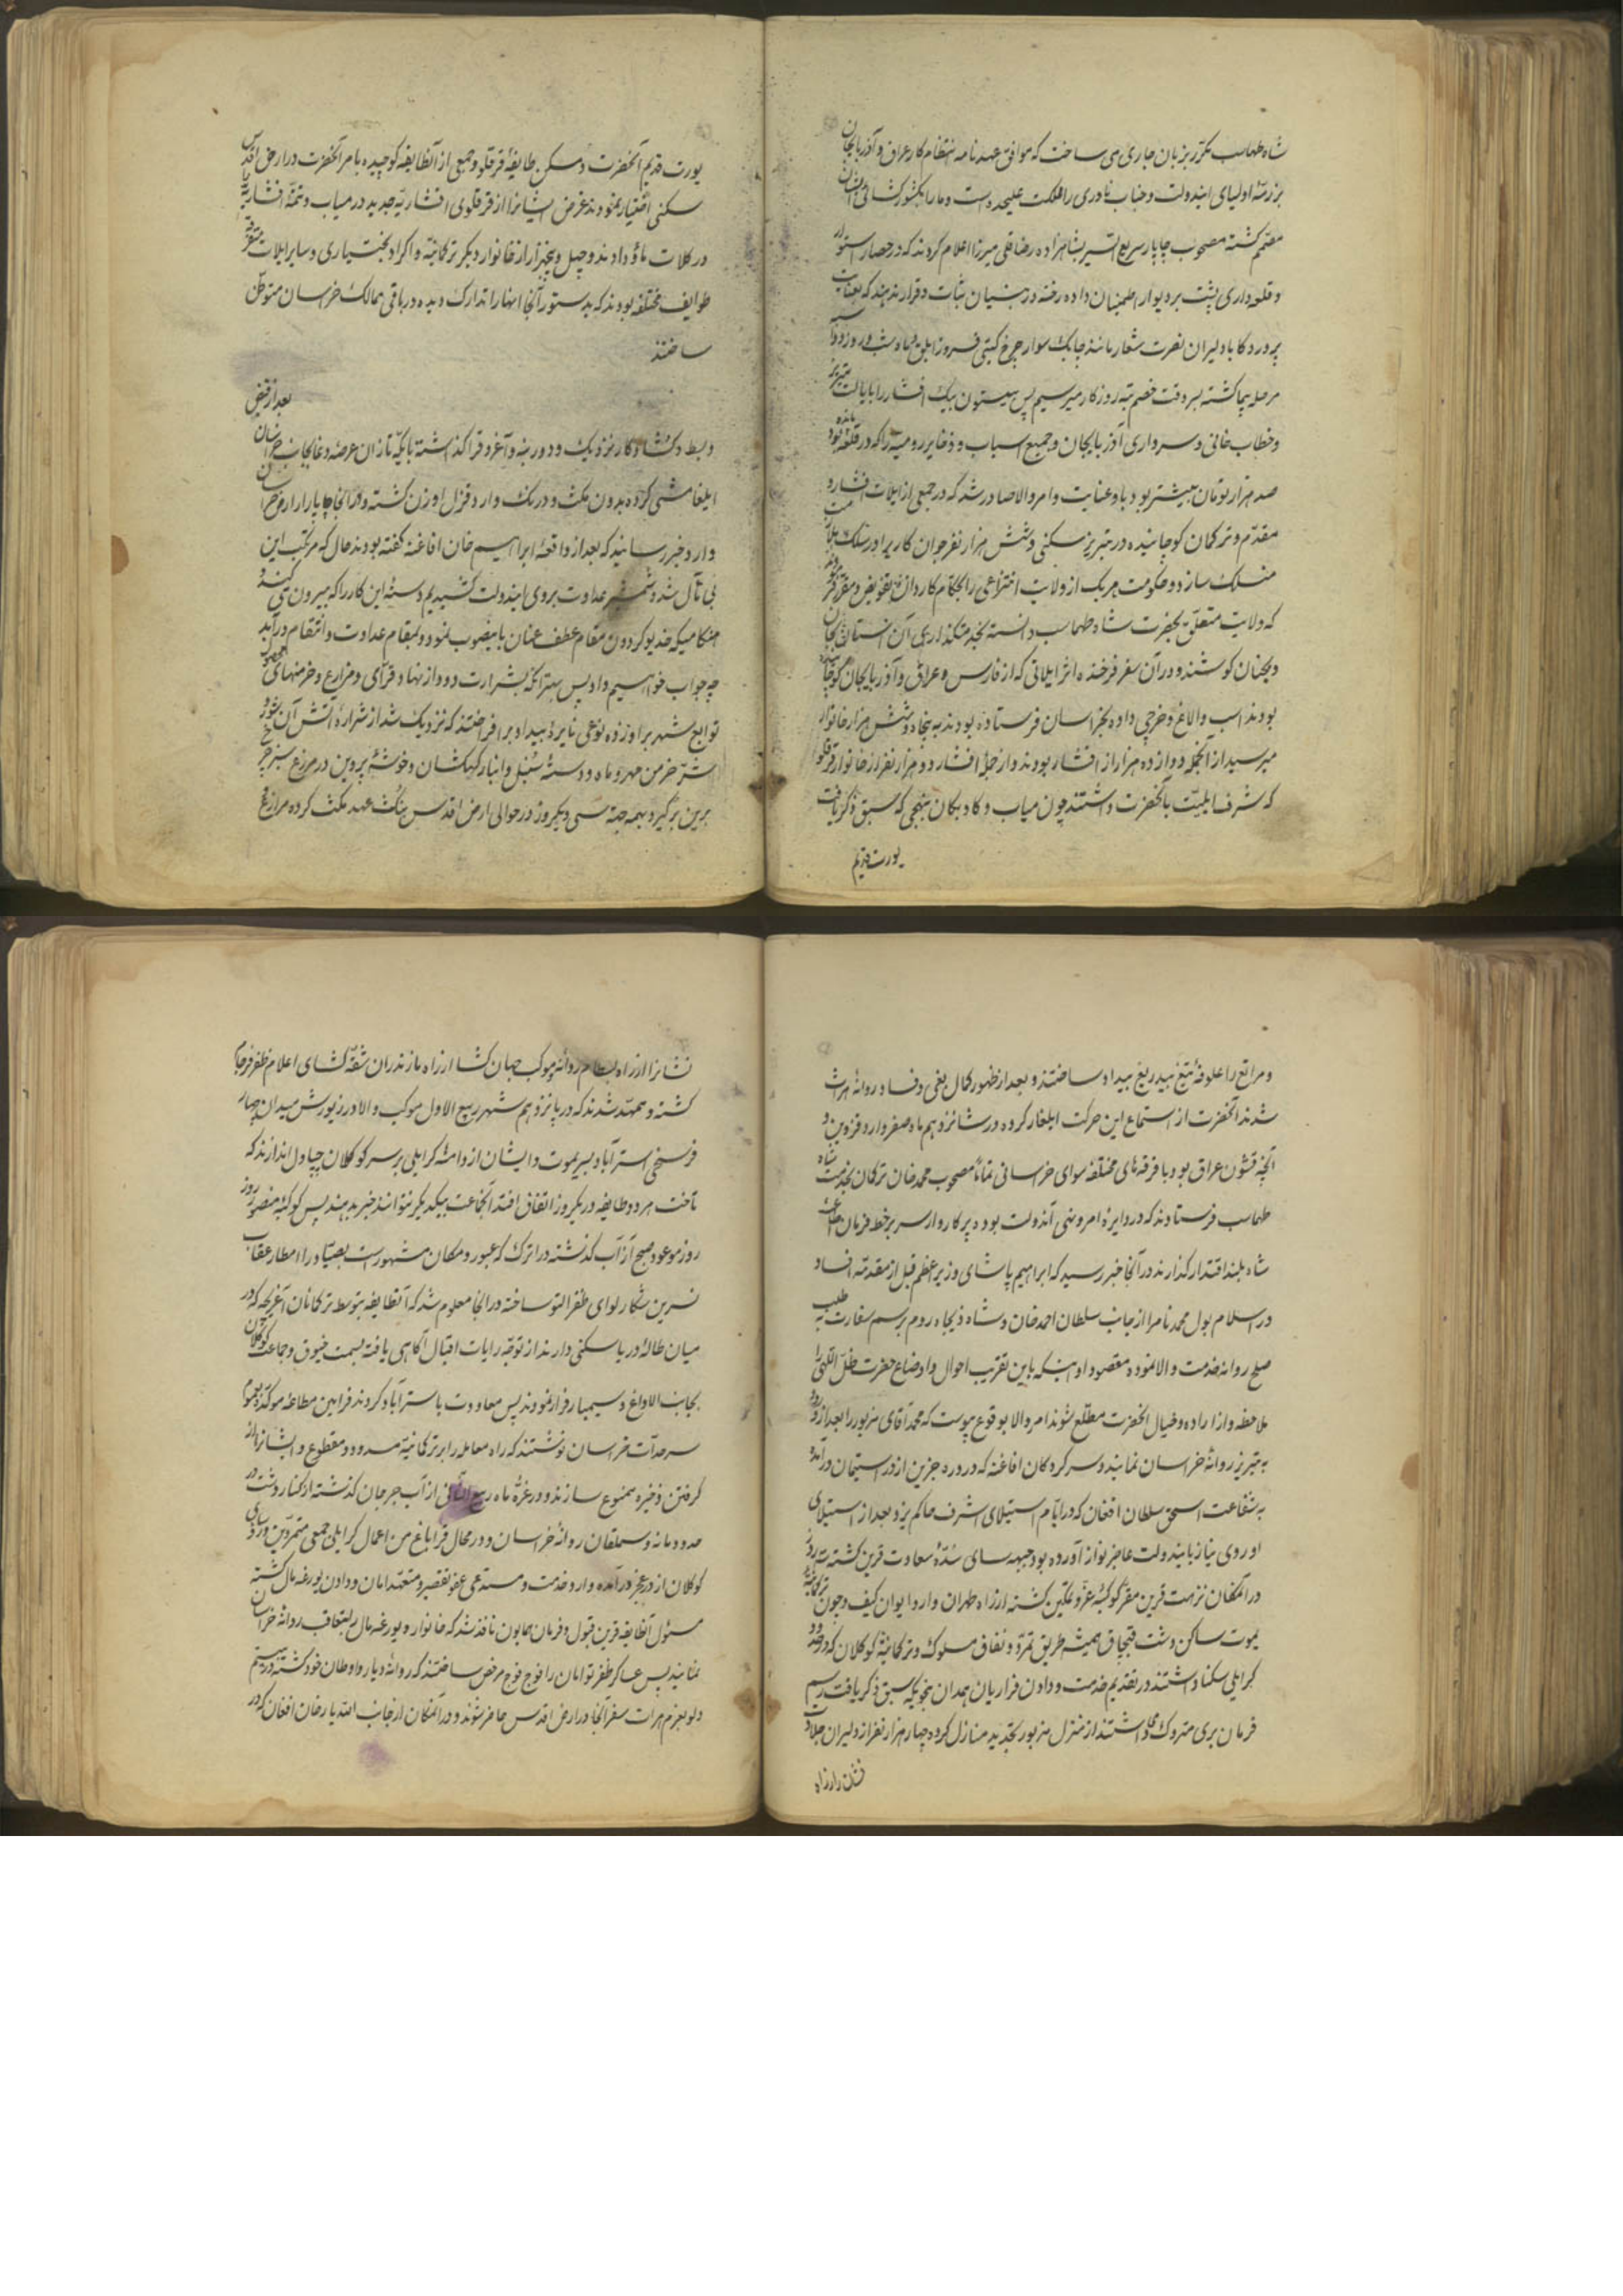 شاه طهماسب مکرر بزبان جاری می ساخت که موافق عهدنامه انتظام کار عراق و آذربایجان
بر ذمّهٔ اولیای ایندولت و جناب نادری را مملکت علیحده است و ما را بکشورکشائی ایشان
مصمّم گشته مصحوب چاپار سریع السیر بشاهزاده رضاقلی میرزا اعلام کردند که در حصار استوار
و قلعه داری پشت بر دیوار اطمینان داده رخنه در بنیان ثبات و قرار ندهند که بعنایت
پروردگار با دلیران نصرت شعار مانند چابک سوار چرخ گیتی فروز ابلق ماه شب و روز دو اسبه
مرحله پیما گشته بسر وقت خصم تیره روزگار میرسیم پس بیستون بیک افشار را بایالت تبریز
و خطاب خانی و سرداری آذربایجان و جمیع اسباب و ذخایر رومیه را که در قلعه مانده بود
صد هزار تومان بیشتر بود باو عنایت و امر والا صادر شد که در جمعی از ایلات افشار و
مقدّم و ترکمان کوچانیده در تبریز سکنی و شش هزار نفر جوان کاری را در سلک ملازمت
منسلک سازد و حکومت هر یک از ولایت انتزاعی را بحکام کاردان تفویض و مقرر فرمودند
که ولایت متعلّق بحضرت شاه طهماسب دانسته بخدمتگذاری آن آستان بجان
و بجنان کوشند و در آن سفر فرخنده اثر ایلاتی که از فارس و عراق و آذربایجان کوچانیده
بودند اسب و الاغ و خرجی داده بخراسان فرستاده بودند به پنجاه و شش هزار خانوار
میرسید از آنجمله دوازده هزار از افشار بودند و از جملهٔ افشار دو هزار نفر از خانوار قرقلو
که شرف ایلیّت بآنحضرت داشتند چون میاب و کاوبکان بنهجی که سبق ذکر یافت
یورت قدیم
یورت قدیم آنحضرت و مسکن طایفهٔ قرقلو و جمعی از آنطایفه کوچیده بامر آنحضرت در ارض اقدس
سکنی اختیار نموده بودند غرض ایشانرا از قرقلوی افشاریّه جدید در میاب و تتمّه افشاریّه را
در کلات مأوی دادند و چهل و پنجهزار از خانوار دیگر ترکمانیّه و اکراد و بختیاری و سایر ایلات متفرقه
طوایف مختلفه بودند که بدستور آنجا انها را تدارک دیده در باقی ممالک خراسان متوطّن
ساختند
بعد از قبض
و بسط و گشاد کار نزدیک و دور بنه و آغروق را گذاشته با یکّه تازان عرصهٔ وغا بجانب خراسان
ایلغامیشی کرده بدون مکث و درنک وارد قزل اوزن گشته و در آنجا چاپار از ارض خراسان
وارد و خبر رسانید که بعد از واقعهٔ ابراهیم خان افاغنه گفته بودند حال که مرتکب این
بی تأمل شده و شمشیر عداوت بروی ایندولت کشیدیم و دستهٔ این کار را که بیرون می کند و
هنگامیکه خدیو گردون مقام عطف عنان باینصوب نمود و بمقام عداوت و انتقام درآید
چه جواب خواهیم داد پس بهتر آنکه بشرارت دود از نهاد قرای و مزارع و خرمنهای محصول
توابع شهر برآورده نوعی نایرهٔ بیداد برافراختند که نزدیک شد از شرارهٔ آتش آن شور و
شرّ خرمن مهر و ماه و دستهٔ سنبل و انبار کهکشان و خوشهٔ پروین در مزرع سبز چرخ
برین در گیرد بهمه جهته سی و یکروز در حوالی ارض اقدس بنکث عهد مکث کرده مزارع
و مراتع را علوفهٔ تیغ بیدریغ بیداد ساختند و بعد از ظهور کمال بغی و فساد روانهٔ هرات
شدند آنحضرت از استماع این حرکت ایلغار کرده در شانزدهم ماه صفر وارد قزوین و
آنچه قشون عراق بود با فرقه های مختلفه سوای خراسانی تماماً مصحوب محمد خان ترکمان بخدمت شاه
طهماسب فرستادند که در دایرهٔ امر و نهی آندولت بوده پرگاروار سر بر خط فرمان اطاعت
شاه بلند اقتدار گذارند در آنجا خبر رسید که ابراهیم پاشای وزیر اعظم قبل از مقدمّه افساد
در اسلامبول محمد نامرا از جانب سلطان احمد خان و شاه ذیجاه روم برسم سفارت به طلب
صلح روانه خدمت والا نموده مقصود او اینکه باین تقریب احوال و اوضاع حضرت ظلّ اللّهی را
ملاحظه و از اراده و خیال آنحضرت مطلّع شوند امر والا بوقوع پیوست که محمد آقای مزبور را بعد از ورود
به تبریز روانهٔ خراسان نمایند و سرکردگان افاغنه که در ورود جزین از در استیمان درآمده
به شفاعت اسحق سلطان افغان که در ایّام استیلای اشرف حاکم یزد بعد از استیلای
او روی نیاز بایندولت عاجزنواز آورده بود جبهه سای سدّهٔ سعادت قرین گشته سه روز
در آنمکان نزهت قرین مقر کوکبهٔ عزّ و تمکین گشته از راه طهران وارد ایوان کیف و چون ترکمانیّه
یموت ساکن دشت قبچاق همیشه طریق تمرّد و نفاق مسلوک و ترکمانیّهٔ کوکلان که در حدود
گرایلی سکنا داشتند در تقدیم خدمت و دادن فراریان همدان بنحویکه سبق ذکر یافت رسم
فرمان بری متروک میداشتند از منزل مزبور تجدید منازل کرده چهار هزار نفر از دلیران جلادت
نشان را از راه
نشانرا از راه بسطام روانه و موکب جهان گشا از راه مازندران شقّه گشای اعلام ظفر فرجام
گشته و ممهّد شدند که در پانزدهم شهر ربیع الاول موکب والا در یورش میدان چهار
فرسخی استرآباد بسر یموت و ایشان از دامنهٔ گرایلی بر سر کوکلان چپاول اندازند که
تاخت هر دو طایفه در یکروز اتفاق افتد آنجماعت بیکدیگر نتوانند خبر بدهند پس کوکبهٔ منصور روز
روز موعود صبح از آب گذشته در اترک که عبور و مکان مشهور است بصیّاد را امطار عقاب
نسرین شکار لوای ظفر التوا ساخته در آنجا معلوم شد که آنطایفه بتوسط ترکمانان آغریجه که در
میان طالهٔ دریا سکنی دارند از توجّه رایات اقبال آگاهی یافته بسمت خیوق و جماعت کوکلان
بجانب الاداغ و سیمبار فرار نمودند پس معاودت باسترآباد کردند فرامین مطاعه موکّده بعموم
سرحدّات خراسان نوشتند که راه معامله را بر ترکمانیّه مسدود و مقطوع و ایشانرا از
گرفتن ذخیره ممنوع سازند و در غرّهٔ ماه ربیع الثّانی از آب جرجان گذشته از کنار دشت در
حدود مانه و سملقان روانهٔ خراسان و در محال قراباغ من اعمال گرایلی جمعی متمردین و رؤسای
کوکلان از در عجز درآمده وارد خدمت و مستدعی عفو تقصیر و متعهّد امان و دادن یورغه مال گشته
مسئول آنطایفه قرین قبول و فرمان همایون نافذ شد که خانوار و یورغه مال بتعاقب روانه خراسان
نمایند پس عساکر ظفر توامان را فوج فوج مرخص ساختند که روانهٔ دیار و اوطان خود گشته در بیستم
دلو بعزم هرات سفر آنجا در ارض اقدس حاضر شوند و در آنمکان از جانب اللّه یار خان افغان که در